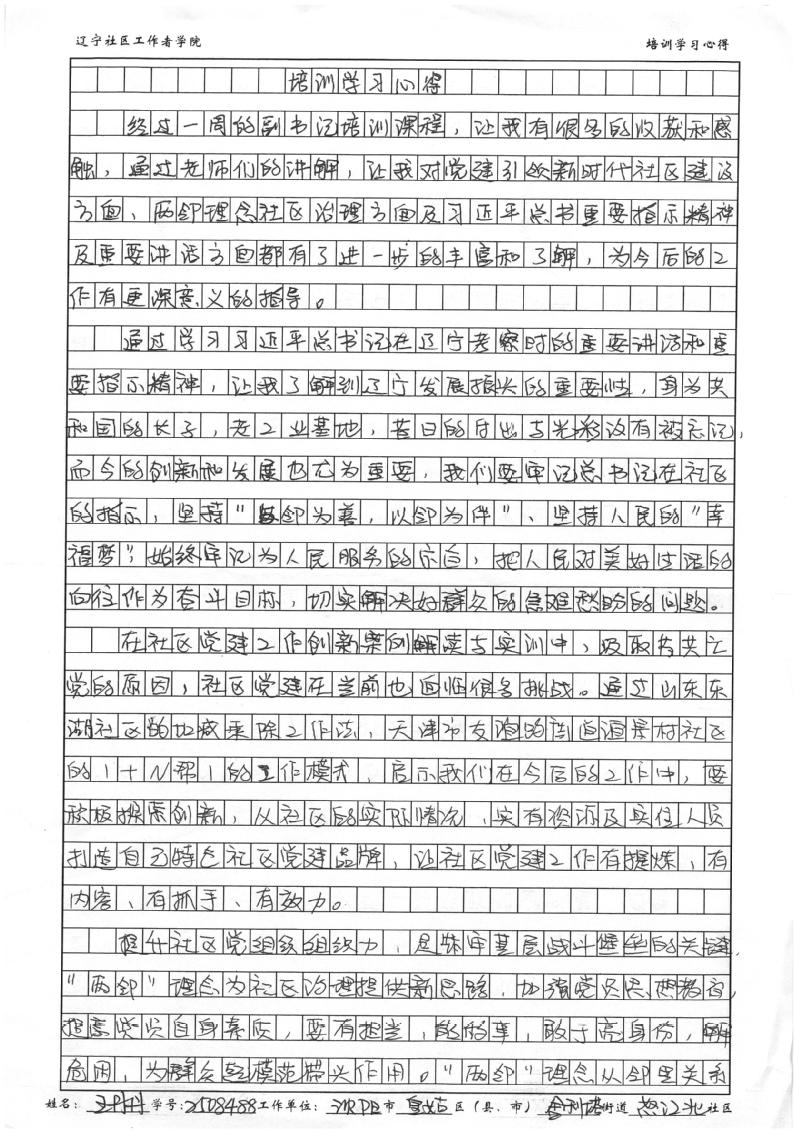 辽宁社区工作者学院 培训学习心得
培训学习心得
经过一周的副书记培训课程，让我有很多的收获和感
触，通过老师们的讲解，让我对党建引领新时代社区建设
方面、两邻理念社区治理方面及习近平总书重要指示精神
及重要讲话方面都有了进一步的丰富和了解，为今后的工
作有更深意义的指导。
通过学习习近平总书记在辽宁考察时的重要讲话和重
要指示精神，让我了解到辽宁发展振兴的重要性，身为共
和国的长子，老工业基地，昔日的付出与光彩没有被忘记，
而今的创新和发展也尤为重要，我们要牢记总书记在社区
的指示，坚持"与邻为善，以邻为伴"、坚持人民的"幸
福梦"，始终牢记为人民服务的宗旨，把人民对美好生活的
向往作为奋斗目标，切实解决好群众的急难愁盼的问题。
在社区党建工作创新案例解读与实训中，吸取苏共亡
党的原因，社区党建在当前也面临很多挑战。通过山东东
湖社区的加减乘除工作法，天津市友谊的街道酒景村社区
的1+N帮1的工作模式，启示我们在今后的工作中，要
积极探索创新，从社区的实际情况，实有资源及实住人员
打造自己特色社区党建品牌，让社区党建工作有提炼、有
内容、有抓手、有效力。
提升社区党组织组织力，是铸牢基层战斗堡垒的关键，
"两邻"理念为社区治理提供新思路，加强党员思想教育，
提高党员自身素质，要有担当，能的事，敢于亮身份，解
危困，为群众起模范带头作用。"两邻"理念从邻里关系
姓名： 学号：2508488 工作单位： 市 区（县、市） 街道 社区